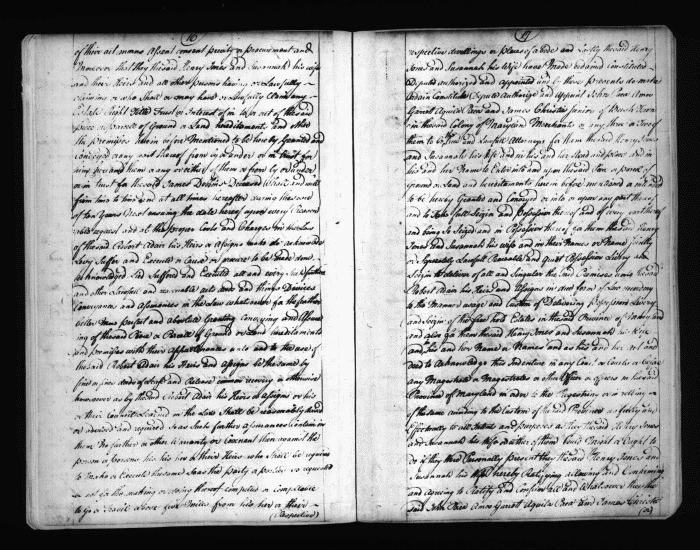 16
of their act means Assent consent privity or procurement and
Moreover that they the said Henry Jones and Susannah his wife
and their Heirs and all other persons having or Lawfully
claiming or who Shall or may have or Lawfully Claim any
Estate Right Title Trust or Interest of in to or out of the said
piece or parcels of Ground or Land hereditaments and other
the premises herein before Mentioned to be hereby granted and
conveyed or any part thereof from by or under or in trust for
from time to time and at all times hereafter during the space
of ten Years next ensuing the date hereof upon every reasonable
request and at the proper Costs and Charges in the Law
of the said Robert Adair his Heirs or Assigns make do acknowledge
Levy Suffer and Execute or Cause or procure to be made done
acknowledged and Executed all and every such
and other Lawfull and reasonable acts and things Devices
Conveyances and Assurances in the Law whatsoever for the further
better more perfect and absolute Granting conveying and Assuring
of the said Piece or Parcel of Ground or Land hereditaments
and premises with their Appurtenances unto and to the use of
the said Robert Adair his Heirs and Assigns be the same by
fine or fines deed of Lease and Release common recovery or otherwise
howsoever as by the said Robert Adair his Heirs or Assigns or his
or their Council Learned in the Law Shall be reasonably
or advised and required so as Such further Assurances Contain in
them No further or other Warranty or Covenant then against the
person or persons his her or their Heirs who Shall be required
to make or Execute the same and so as the party or parties so required
or not for the making or doing thereof compelled or compelable
to go or Travel above five Miles from his her or their
(Respective)
17
respective dwellings or places of abode and Lastly the said Henry
Jones and Susannah his Wife have Made ordained Constituted
Deputed authorized and appointed and by these presents do make
Ordain Constitute Depute Authorize and Appoint John
Garrett Aquila and James Christie Junior of
in the said Colony of Maryland Merchants or any three or Two of
them to be Their Lawfull Attorneys for them the said Henry Jones
and Susannah his Wife and in his and her Stead and place and in
his and her Name to Enter into and upon the said piece or parcel of
ground or Land and hereditaments herein before mentioned or intended
to be hereby Granted and Conveyed or into or upon any part thereof
and to take full Seizin and Possession thereof and of every part thereof
and being So Seized and in Possession thereof for them the said Henry
Jones and Susannah his wife and in their Names or Name jointly
or Severally Lawfull Peaceable and quiet Possession Livery and
Seizin to deliver of all and Singular the said Premises unto the said
Robert Adair his Heirs and Assigns in due form of Law according
to the Manner usage and Custom of Delivering Possession Livery
and Seizin of the free hold Estates in the said Province of Maryland
and also for them the said Henry Jones and Susannah his Wife
and in his and her Name or Names and as his and her Act and
deed to Acknowledge this Indenture in any Court or Courts or before
any Magistrate or Magistrates or other Officer or officers in the said
Province of Maryland in order to the Registring or inrolling
of the same according to the Custom of the said Province as fully and
Effectually to all Intents and purposes as they the said Henry Jones
and Susannah his Wife or either of them Could Might or Ought to
do if they were Personally present they the said Henry Jones and
Susannah his Wife hereby Ratifying allowing and Confirming
and agreeing to Ratify and Confirm all and Whatsoever they the
said John Garrett Aquila and James Christie
(or)